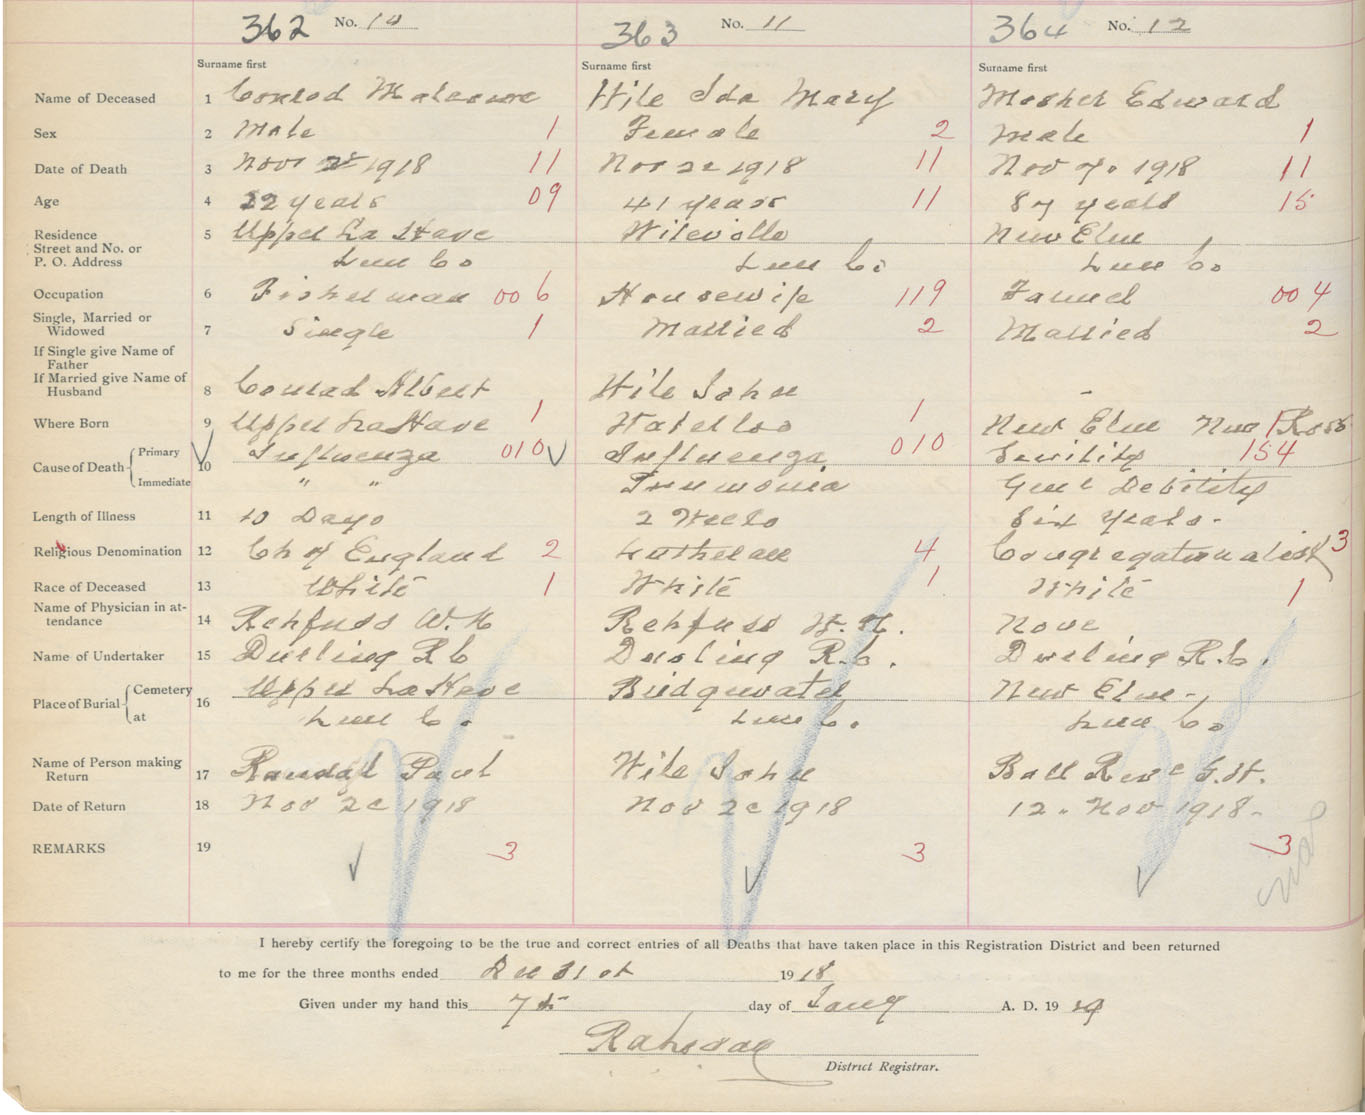 362 No. 10 363 No. 11 364 No. 12
Surname first Surname first Surname first
Name of Deceased 1 Conrad Wile Ida Mary Mosher Edward
Sex 2 Male 1 Female 2 Male 1
Date of Death 3 Nov 1918 11 Nov 2c 1918 11 Nov 7. 1918 11
Age 4 22 years 09 41 years 11 87 years 15
Residence 5 Upper La Have Wileville New Elm
Street and No. or
P. O. Address Lun Co Lun Co. Lun Co.
Occupation 6 Fisherman 006 Housewife 119 Farmer 004
Single, Married or
Widowed 7 Single 1 Married 2 Married 2
If Single give Name of
Father
If Married give Name of
Husband 8 Conrad Albert Wile John -
Where Born 9 Upper La Have 1 Waterloo 1 New Elm 1 Ross
Cause of Death Primary 10 Influenza 010 Influenza 010 Senility 154
Immediate " " Pneumonia Genl Debility
Length of Illness 11 10 Days 2 Weeks Six Years -
Religious Denomination 12 Ch of England 2 Lutheran 4 Congregationalist 3
Race of Deceased 13 White 1 White 1 White 1
Name of Physician in at-
tendance 14 Rehfuss W. N Rehfuss W. N. None
Name of Undertaker 15 Dauling R C R. C. R. C.
Place of Burial Cemetery 16 Upper La Have Bridgewater New Elm -
at Lun C. Lun C. Lun Co
Name of Person making
Return 17 Randal Paul Wile John Ball Revd G. H.
Date of Return 18 Nov 2c 1918 Nov 2c 1918 12. Nov 1918 -
REMARKS 19 3 3 3
I hereby certify the foregoing to be the true and correct entries of all Deaths that have taken place in this Registration District and been returned
to me for the three months ended Dec 31st 1918
Given under my hand this 7th day of Jany A. D. 1919
District Registrar.